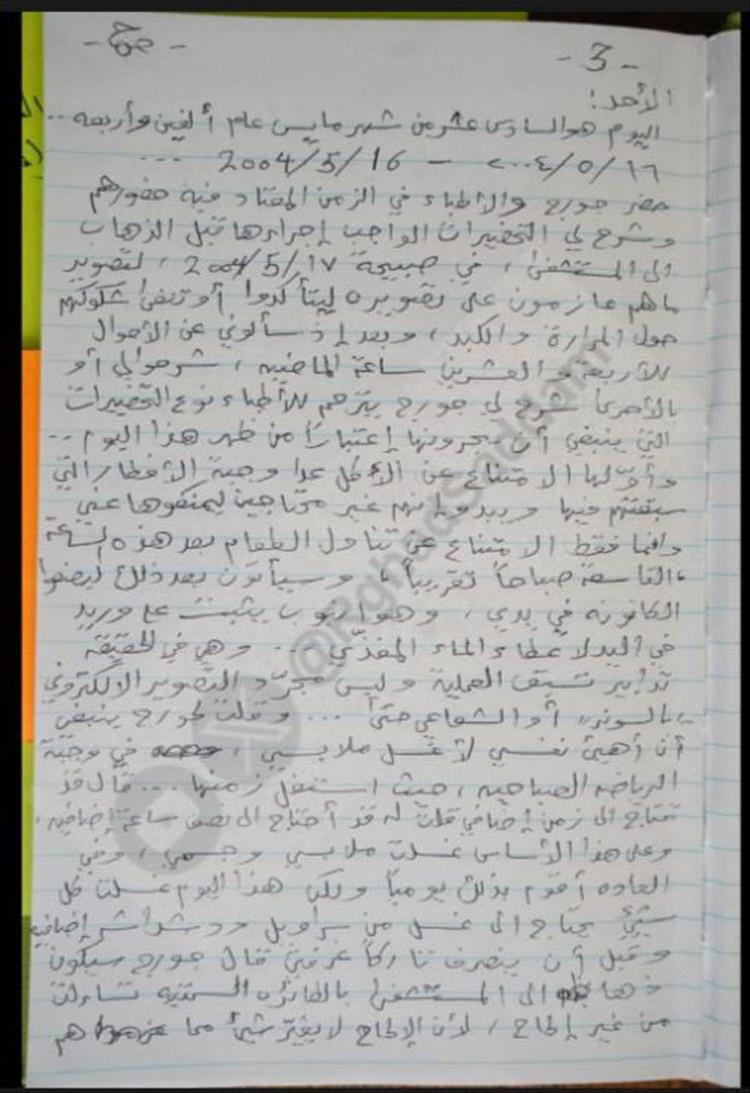 - 3 -
الأحد:
اليوم هو السادس عشر من شهر مايس عام ألفين وأربعه ...
٢٠٠٤/٥/١٦ - 2004/5/16 ...
حضر جورج والأطباء في الزمن المعتاد فيه حضورهم
وشرح لي التحضيرات الواجب إجراءها قبل الذهاب
الى المستشفى ، في صبيحة 2004/5/17 ، لتصوير
ما هم عازمون على تصويره ليتأكدوا أو تنفى شكوكهم
حول المرارة والكبد ، وبعد إذ سألوني عن الأحوال
للأربعة والعشرين ساعة الماضيه ، شرحوا لي أو
بالأحرى شرح لي جورج يترجم للأطباء نوع التحضيرات
التي ينبغي أن يجرونها إعتباراً من ظهر هذا اليوم ..
وأولها الامتناع عن الأكل عدا وجبة الأفطار التي
سبقتهم فيها ويبدو انهم غير محتاجين ليمنعوها عني
وانما فقط الامتناع عن تناول الطعام بعد هذه الساعة
"التاسعة صباحاً تقريباً" ، وسيأتون بعد ذلك ليضعوا
الكانونه في يدي ، وهو انبوب يثبت على وريد
في اليد لاعطاء الماء المغذّي ... وهي في الحقيقه
تدابير تسبق العملية وليس مجرّد التصوير الالكتروني
"بالسونر" أو الشعاعي حتى ... وقلت لجورج ينبغي
أن أهيئ نفسي لأغسل ملابسي ، في وجبة
الرياضه الصباحيه ، حيث استغل زمنها ... قال قد
تحتاج الى زمن إضافي قلت له قد أحتاج الى نصف ساعة إضافيه ،
وعلى هذا الأساس غسلت ملابسي وجسمي ، وفي
العاده أقوم بذلك يومياً ولكن هذا اليوم غسلت كل
شيئ يحتاج الى غسل من سراويل ودشداشه إضافيه
وقبل أن ينصرف تاركاً غرفتي قال جورج سيكون
ذهابك الى المستشفى بالطائره السمتيه تساءلت
من غير إلحاح ، لأن الإلحاح لا يغيّر شيئاً مما هم
@RghadSaddam